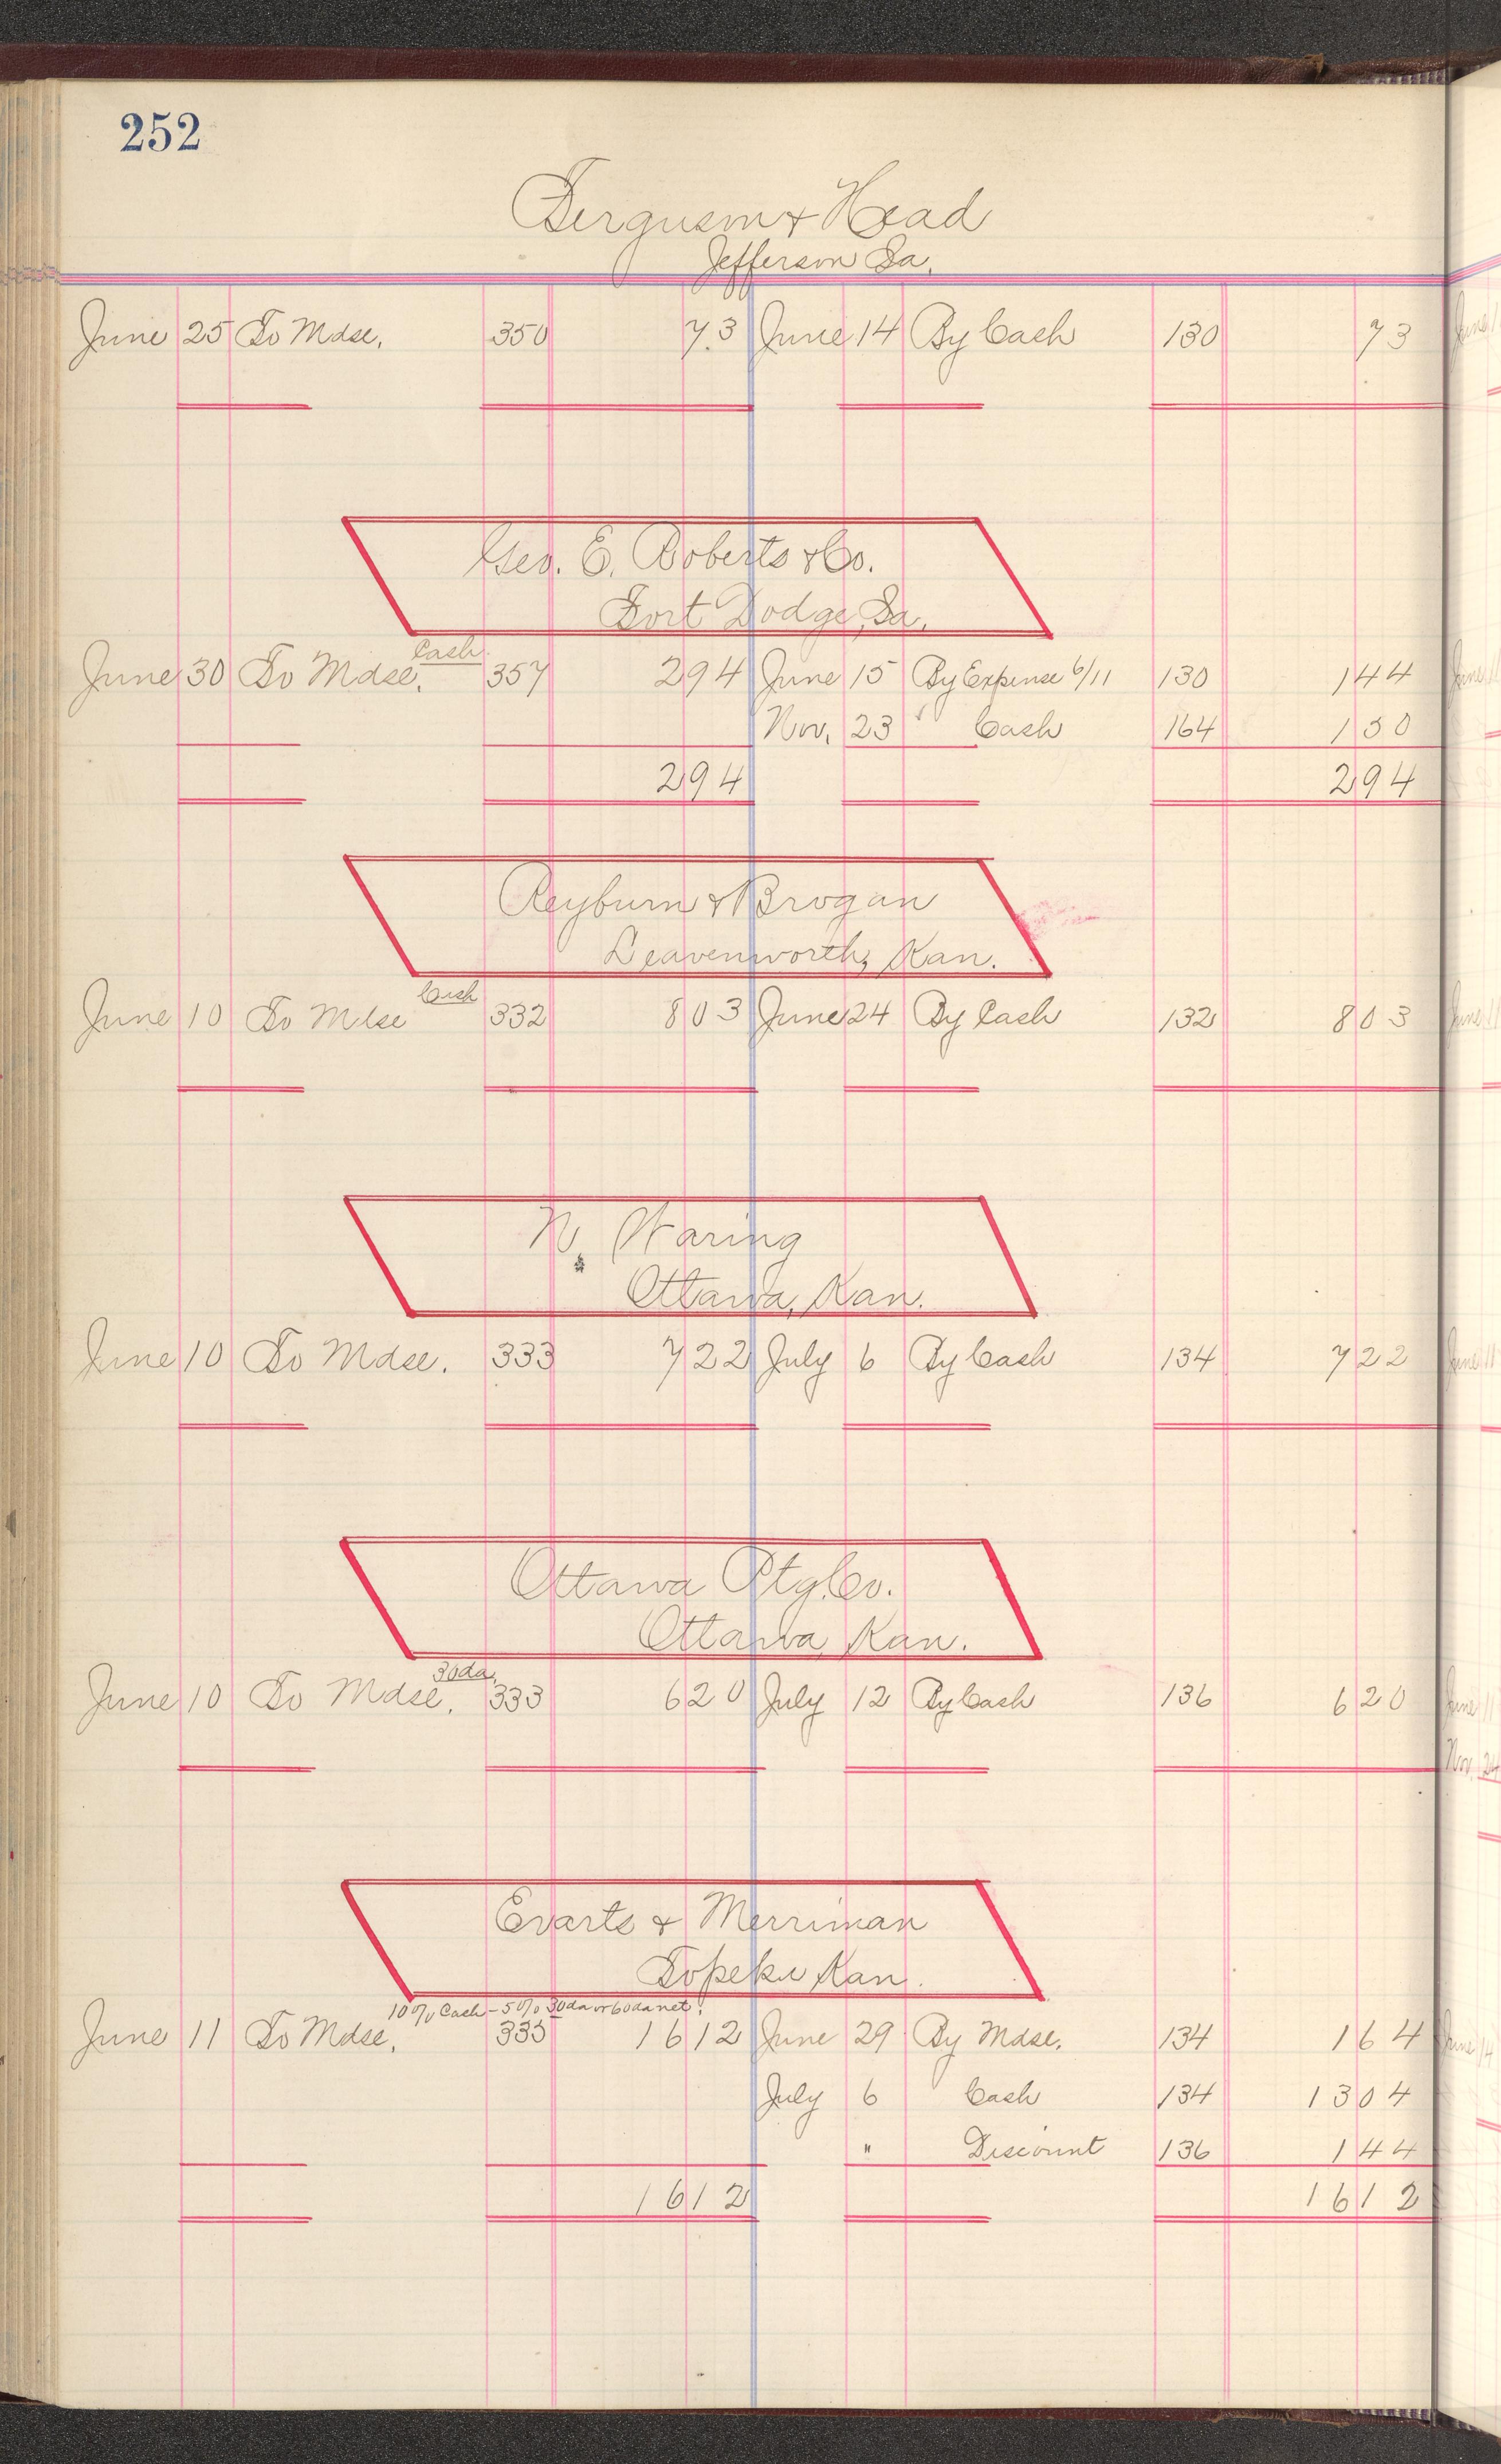 252
Ferguson & Head
Jefferson Ia.
June 25 To Mdse. 350 73 June 14 By Cash 130 73
Geo. E. Roberts & Co.
Fort Dodge, Ia.
Cash
June 30 To Mdse. 357 294 June 15 By Expense 6/11 130 144
Nov. 23 " Cash 164 150
294 294
Reyburn & Brogan
Leavenworth, Kan.
Cash
June 10 To Mdse 332 803 June 24 By Cash 132 803
N. Waring
Ottawa, Kan.
June 10 To Mdse. 333 722 July 6 By Cash 134 722
Ottawa Ptg. Co.
Ottawa, Kan.
30 da.
June 10 To Mdse. 333 620 July 12 By Cash 136 620
Evarts & Merriman
Topeka Kan.
10% Cash - 5% 30 da or 60 da net.
June 11 To Mdse. 335 1612 June 29 By Mdse. 134 164
July 6 Cash 134 1304
" Discount 136 144
1612 1612